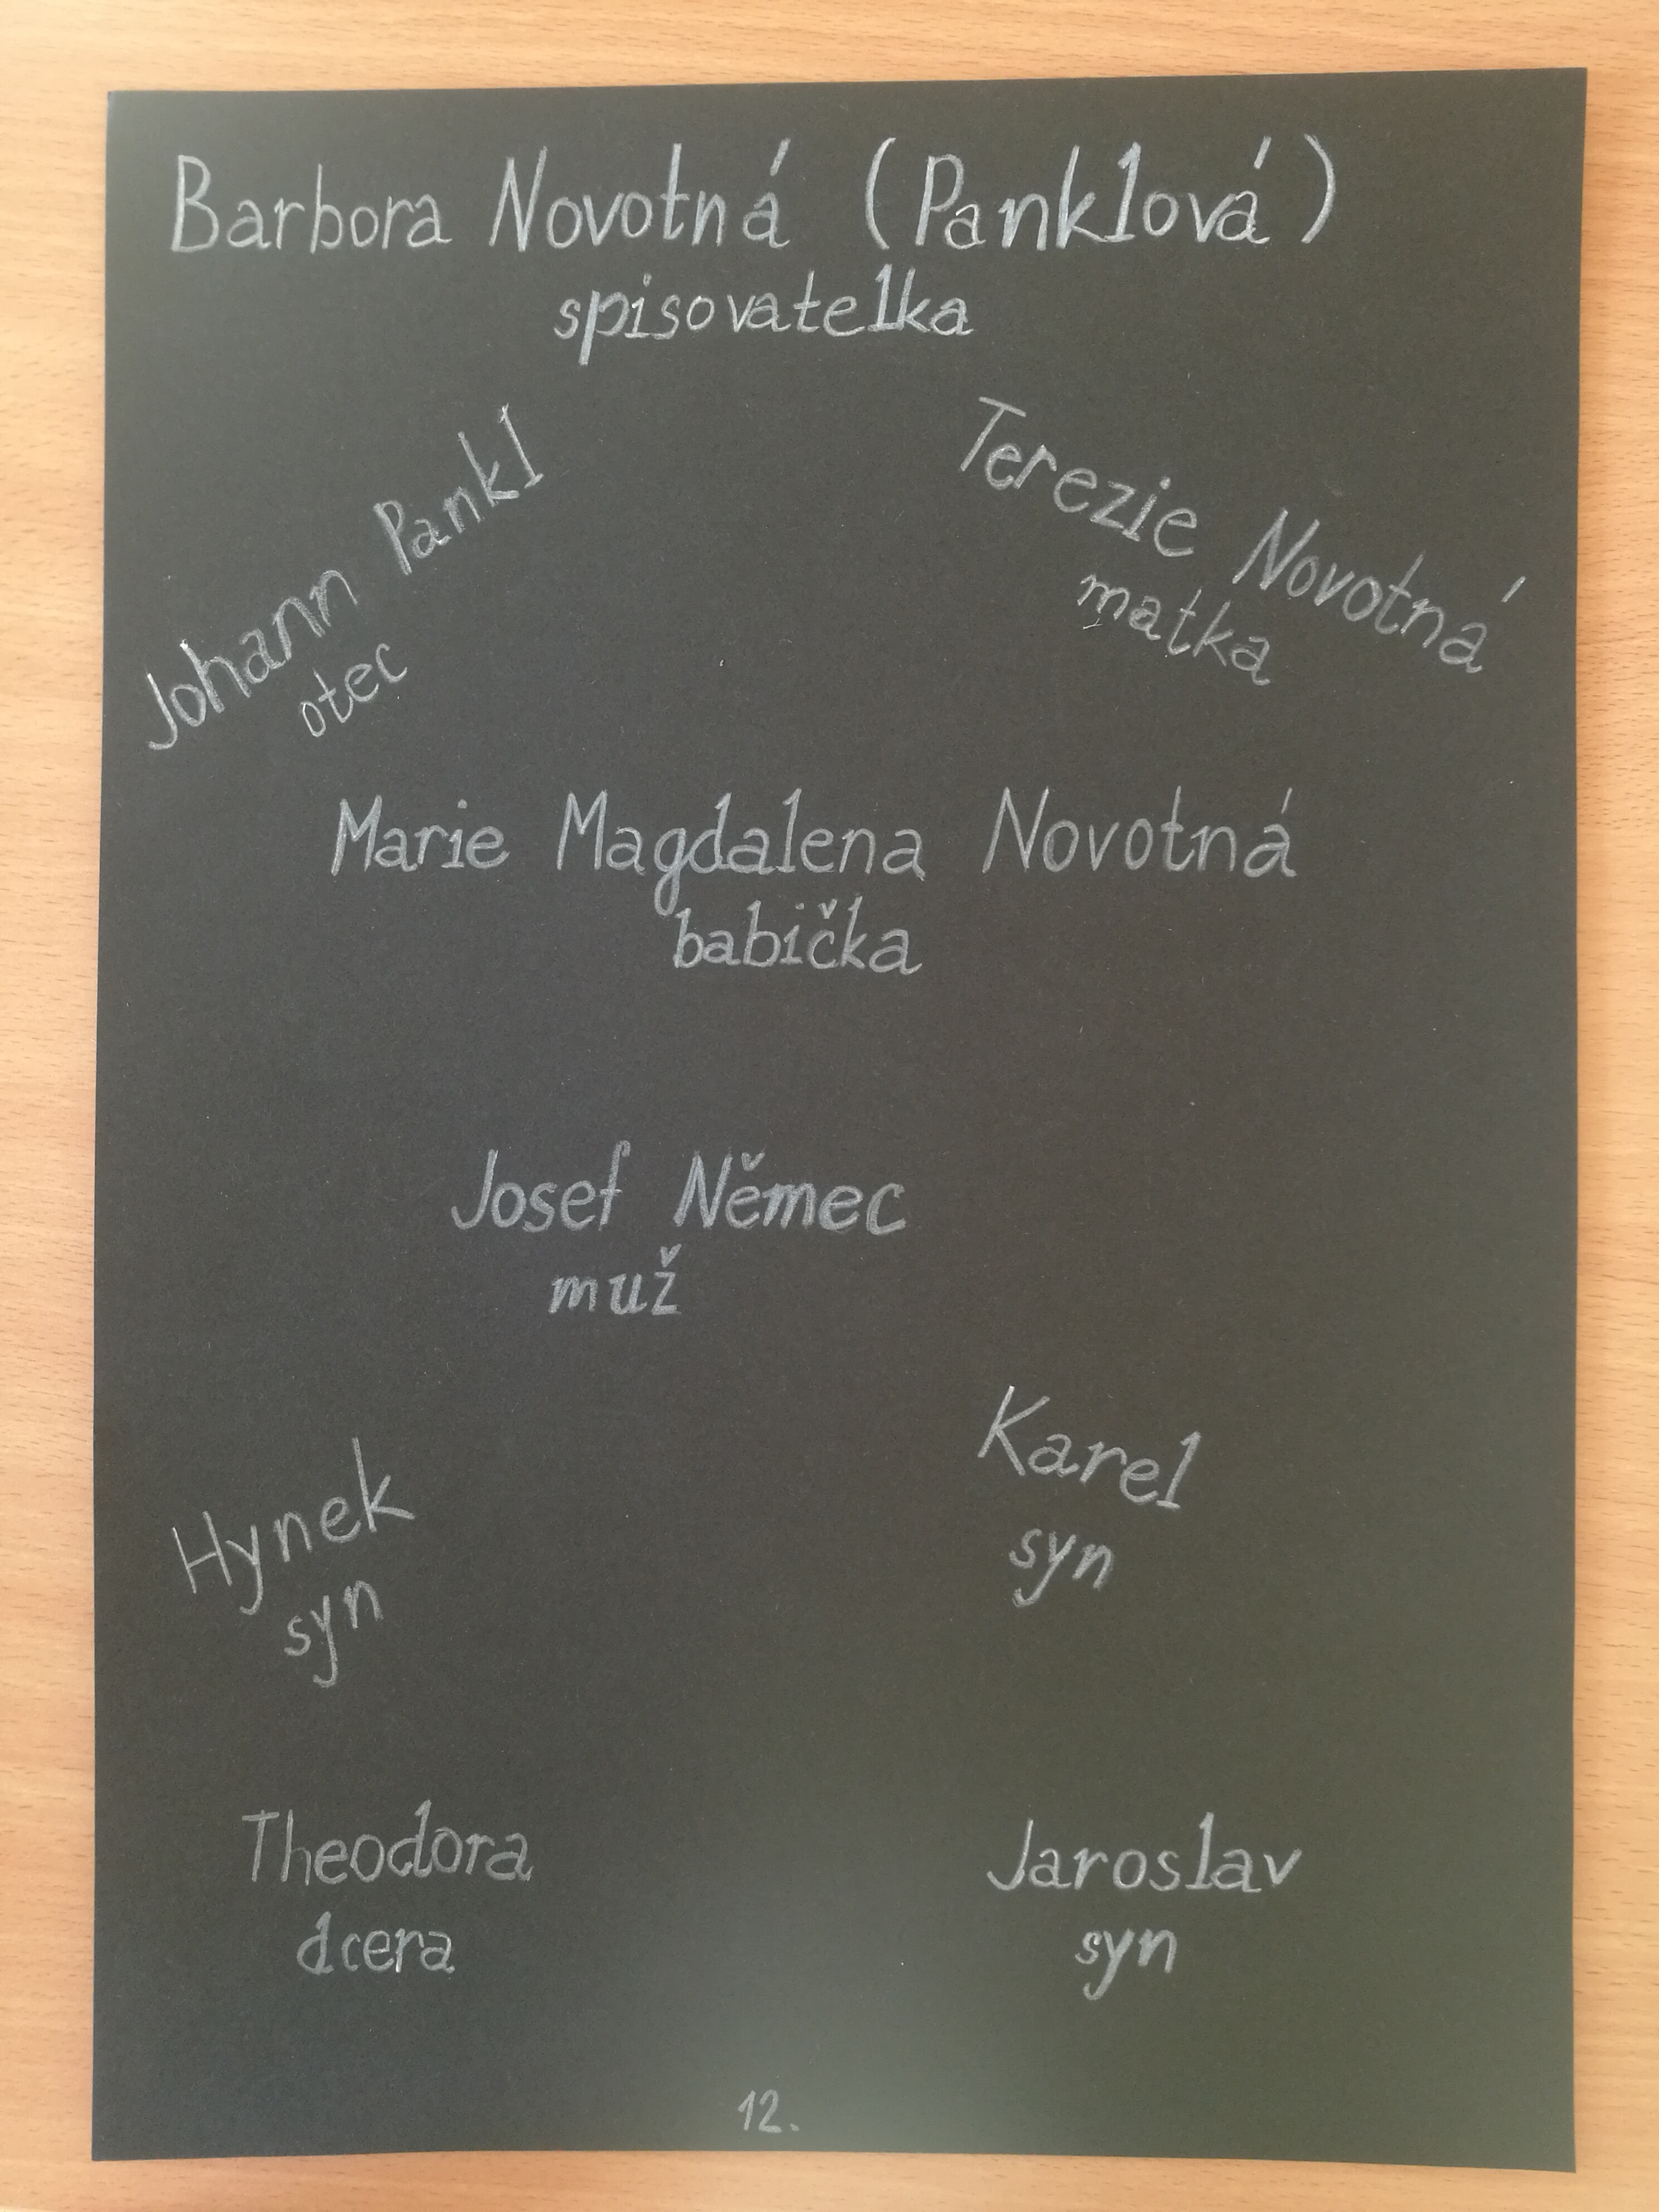 Barbora Novotná (Panklová)
spisovatelka
Johann Pankl
otec
Terezie Novotná
matka
Marie Magdalena Novotná
babička
Josef Němec
muž
Hynek
syn
Karel
syn
Theodora
dcera
Jaroslav
syn
12.